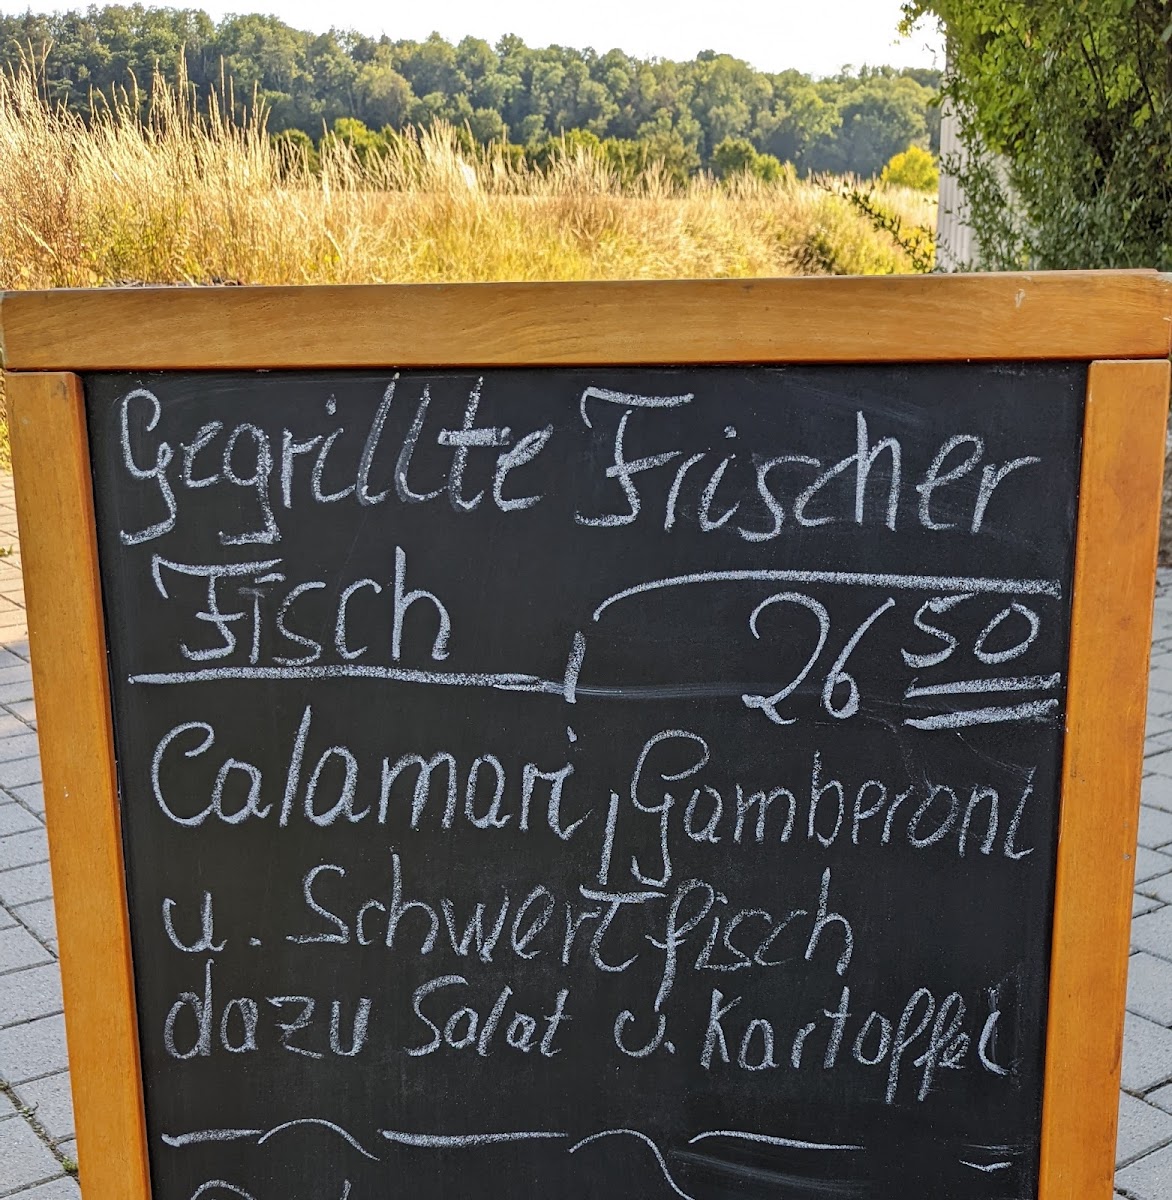 Gegrillte Frischer
Fisch 26 50
Calamari, Gamberoni
u. Schwertfisch
dazu Salat u. Kartoffel